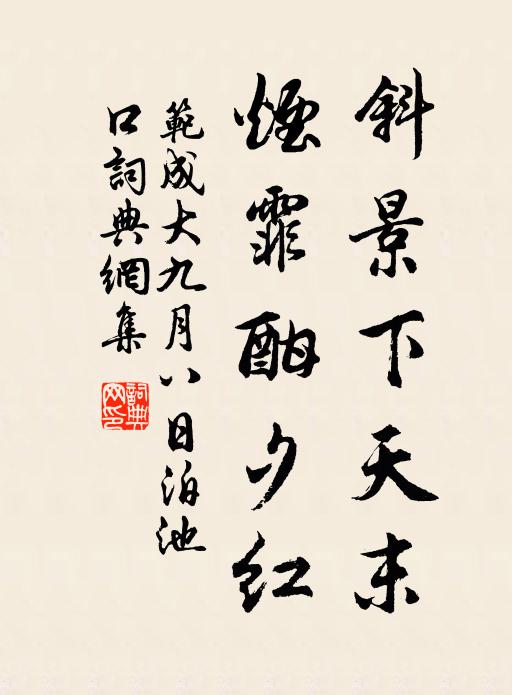 斜景下天末
煙霏酣夕紅
範成大九月八日泊池
口詞典網集
詞典
网印